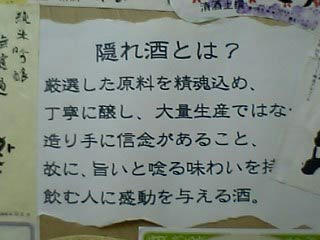 隠れ酒とは？
厳選した原料を精魂込め、
丁寧に醸し、大量生産ではな
造り手に信念があること、
故に、旨いと唸る味わいを持
飲む人に感動を与える酒。
清酒主標
純米吟醸